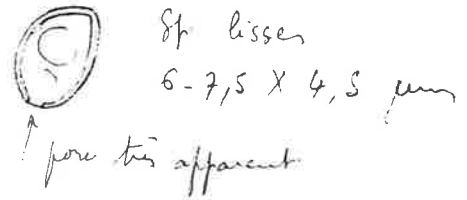 Sp lisses
6-7,5 X 4,5 µm
pore très apparent